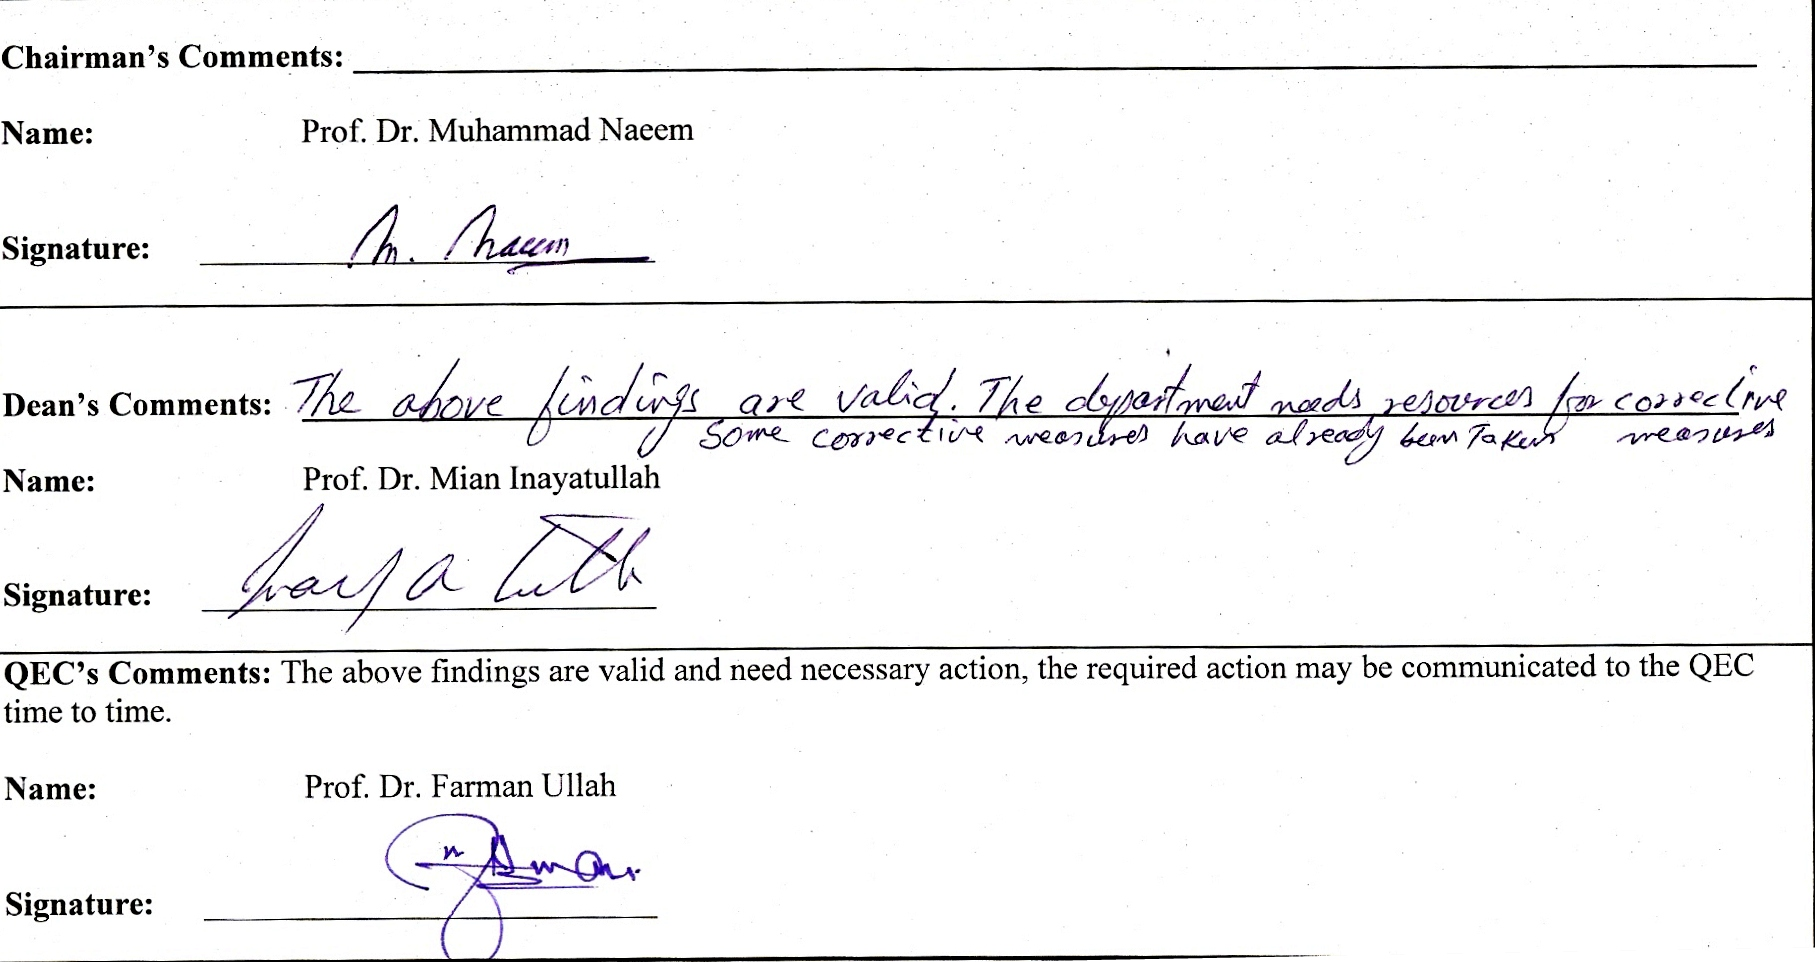 Chairman's Comments:
Name: Prof. Dr. Muhammad Naeem
Signature: M. Naeem
Dean's Comments: The above findings are valid. The department needs resources for corrective
Some corrective measures have already been Taken measures
Name: Prof. Dr. Mian Inayatullah
Signature:
QEC's Comments: The above findings are valid and need necessary action, the required action may be communicated to the QEC
time to time.
Name: Prof. Dr. Farman Ullah
Signature: